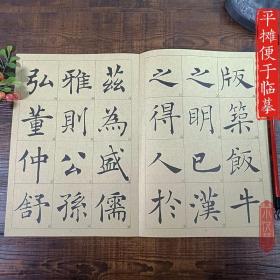 版築飯牛
之明已漢
之得人於
茲為盛儒
雅則公孫
弘董仲舒
平摊便于临摹